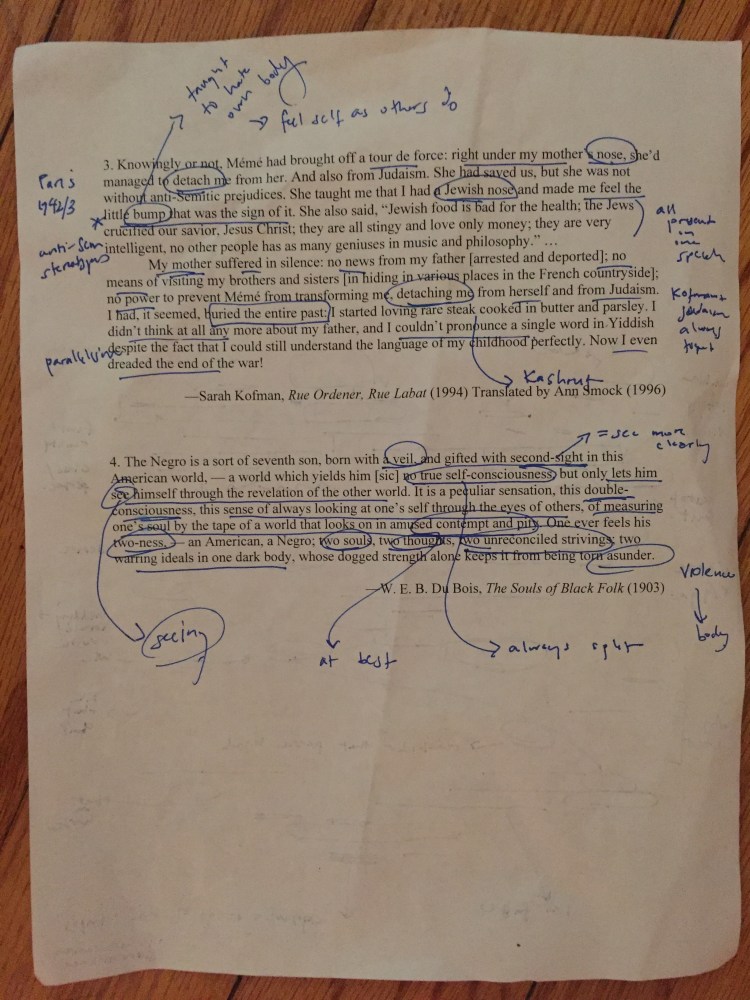 taught
to hate
own body
→ feel self as others do
3. Knowingly or not, Mémé had brought off a tour de force: right under my mother's nose, she'd
managed to detach me from her. And also from Judaism. She had saved us, but she was not
without anti-Semitic prejudices. She taught me that I had a Jewish nose and made me feel the
little bump that was the sign of it. She also said, “Jewish food is bad for the health; the Jews
crucified our savior, Jesus Christ; they are all stingy and love only money; they are very
intelligent, no other people has as many geniuses in music and philosophy.” …
My mother suffered in silence: no news from my father [arrested and deported]; no
means of visiting my brothers and sisters [in hiding in various places in the French countryside];
no power to prevent Mémé from transforming me, detaching me from herself and from Judaism.
I had, it seemed, buried the entire past: I started loving rare steak cooked in butter and parsley. I
didn't think at all any more about my father, and I couldn't pronounce a single word in Yiddish
despite the fact that I could still understand the language of my childhood perfectly. Now I even
dreaded the end of the war!
Paris
1942/3
*
anti-Sem
stereotypes
all
present
in
one
speech
Kofman's
Judaism
always
Kashrut
—Sarah Kofman, Rue Ordener, Rue Labat (1994) Translated by Ann Smock (1996)
= see more
clearly
4. The Negro is a sort of seventh son, born with a veil, and gifted with second-sight in this
American world, — a world which yields him [sic] no true self-consciousness, but only lets him
see himself through the revelation of the other world. It is a peculiar sensation, this double-
consciousness, this sense of always looking at one's self through the eyes of others, of measuring
one's soul by the tape of a world that looks on in amused contempt and pity. One ever feels his
two-ness, — an American, a Negro; two souls, two thoughts, two unreconciled strivings; two
warring ideals in one dark body, whose dogged strength alone keeps it from being torn asunder.
—W. E. B. Du Bois, The Souls of Black Folk (1903)
violence
↓
body
seeing
at best
always split